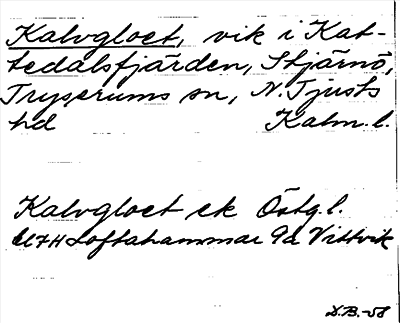 Kalvgloet, vik i Kat-
tedalsfjärden, Stjärnö,
Tryserums sn, N. Tjusts
hd Kalm. l.
Kalvgloet ek Östg. l.
Loftahammar 9a Vittvik
D.B.-58